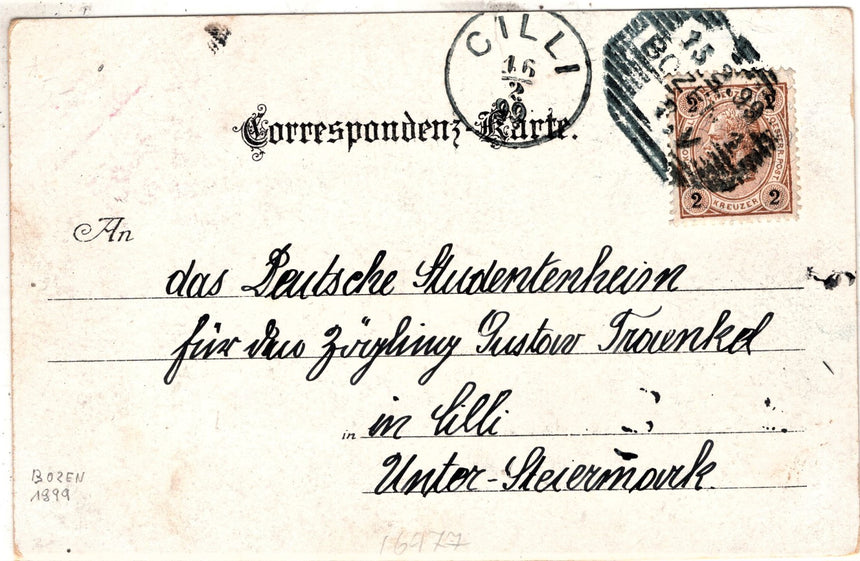 CILLI
16
2
99
15 2.99
BOZEN
Correspondenz-Karte.
2 2
2 KREUZER 2
An
das Deutsche Studentenheim
für den Zögling Gustav Traenkel
in in Cilli
Unter-Steiermark.
BOZEN
1899
16477